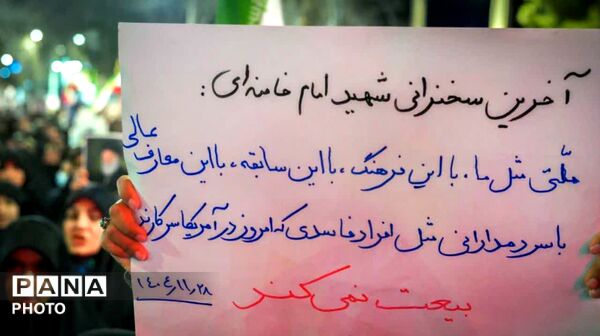 آخرین سخنرانی شهید امام خامنه‌ای:
ملّتی مثل ما، با این فرهنگ، با این سابقه، با این معارف عالی
با سردمدارانی مثل افراد فاسدی که امروز در آمریکا سرکارند
بیعت نمی‌کند
۱۴۰۴,۱۱,۲۸
PANA
PHOTO